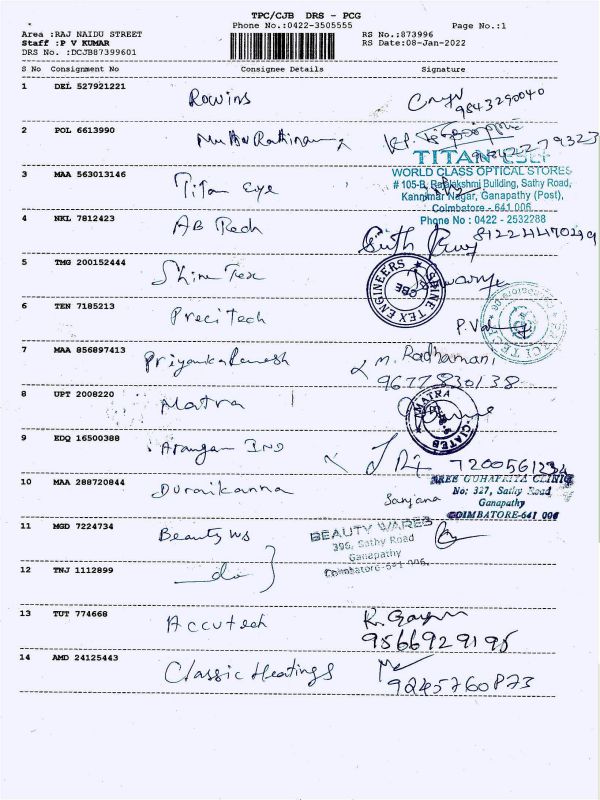 TPC/CJB DRS - PCG
Phone No.:0422-3505555
Page No.:1
Area :RAJ NAIDU STREET
Staff :P V KUMAR
DRS No. :DCJB87399601
RS No.:873996
RS Date:08-Jan-2022
S No Consignment No Consignee Details Signature
1 DEL 527921221 Rowins 9843290040
2 POL 6613990
TITAN
WORLD CLASS OPTICAL STORES
3 MAA 563013146 Titan eye
# 105-B, Rajalakshmi Building, Sathy Road,
Kannimar Nagar, Ganapathy (Post),
Coimbatore - 641 006
Phone No : 0422 - 2532288
4 NKL 7812423 AB Tech
5 TMG 200152444 Shine Tex
SHINE TEX ENGINEERS CBE
6 TEN 7185213 Precitech
7 MAA 856897413 Priyanka Ramesh M. Radhamani
9677830138
8 UPT 2008220 Matra
MATRA
9 EDQ 16500388 Arangan IND 7200561234
10 MAA 288720844 Duraikanna Sanjana
SREE GUHAPRIYA CLINIC
No: 327, Sathy Road
Ganapathy
COIMBATORE-641 006
11 MGD 7224734 Beauty WS
BEAUTY WARES
396, Sathy Road
Ganapathy
Coimbatore-641 006.
12 TNJ 1112899 do
13 TUT 774668 Accutech
9566929195
14 AMD 24125443 Classic Heatings
9245760873